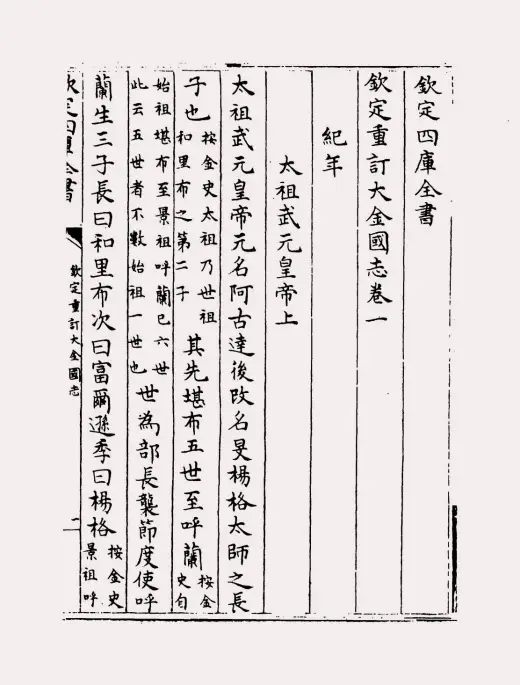 欽定四庫全書
欽定重訂大金國志卷一
紀年
太祖武元皇帝上
太祖武元皇帝元名阿古達後改名旻楊格太師之長
子也按金史太祖乃世祖和里布之第二子其先堪布五世至呼蘭按金史自
始祖堪布至景祖呼蘭已六世此云五世者不數始祖一世也世為部長襲節度使呼
蘭生三子長曰和里布次曰富爾遜季曰楊格按金史景祖呼
欽定四庫全書
欽定重訂大金國志
一